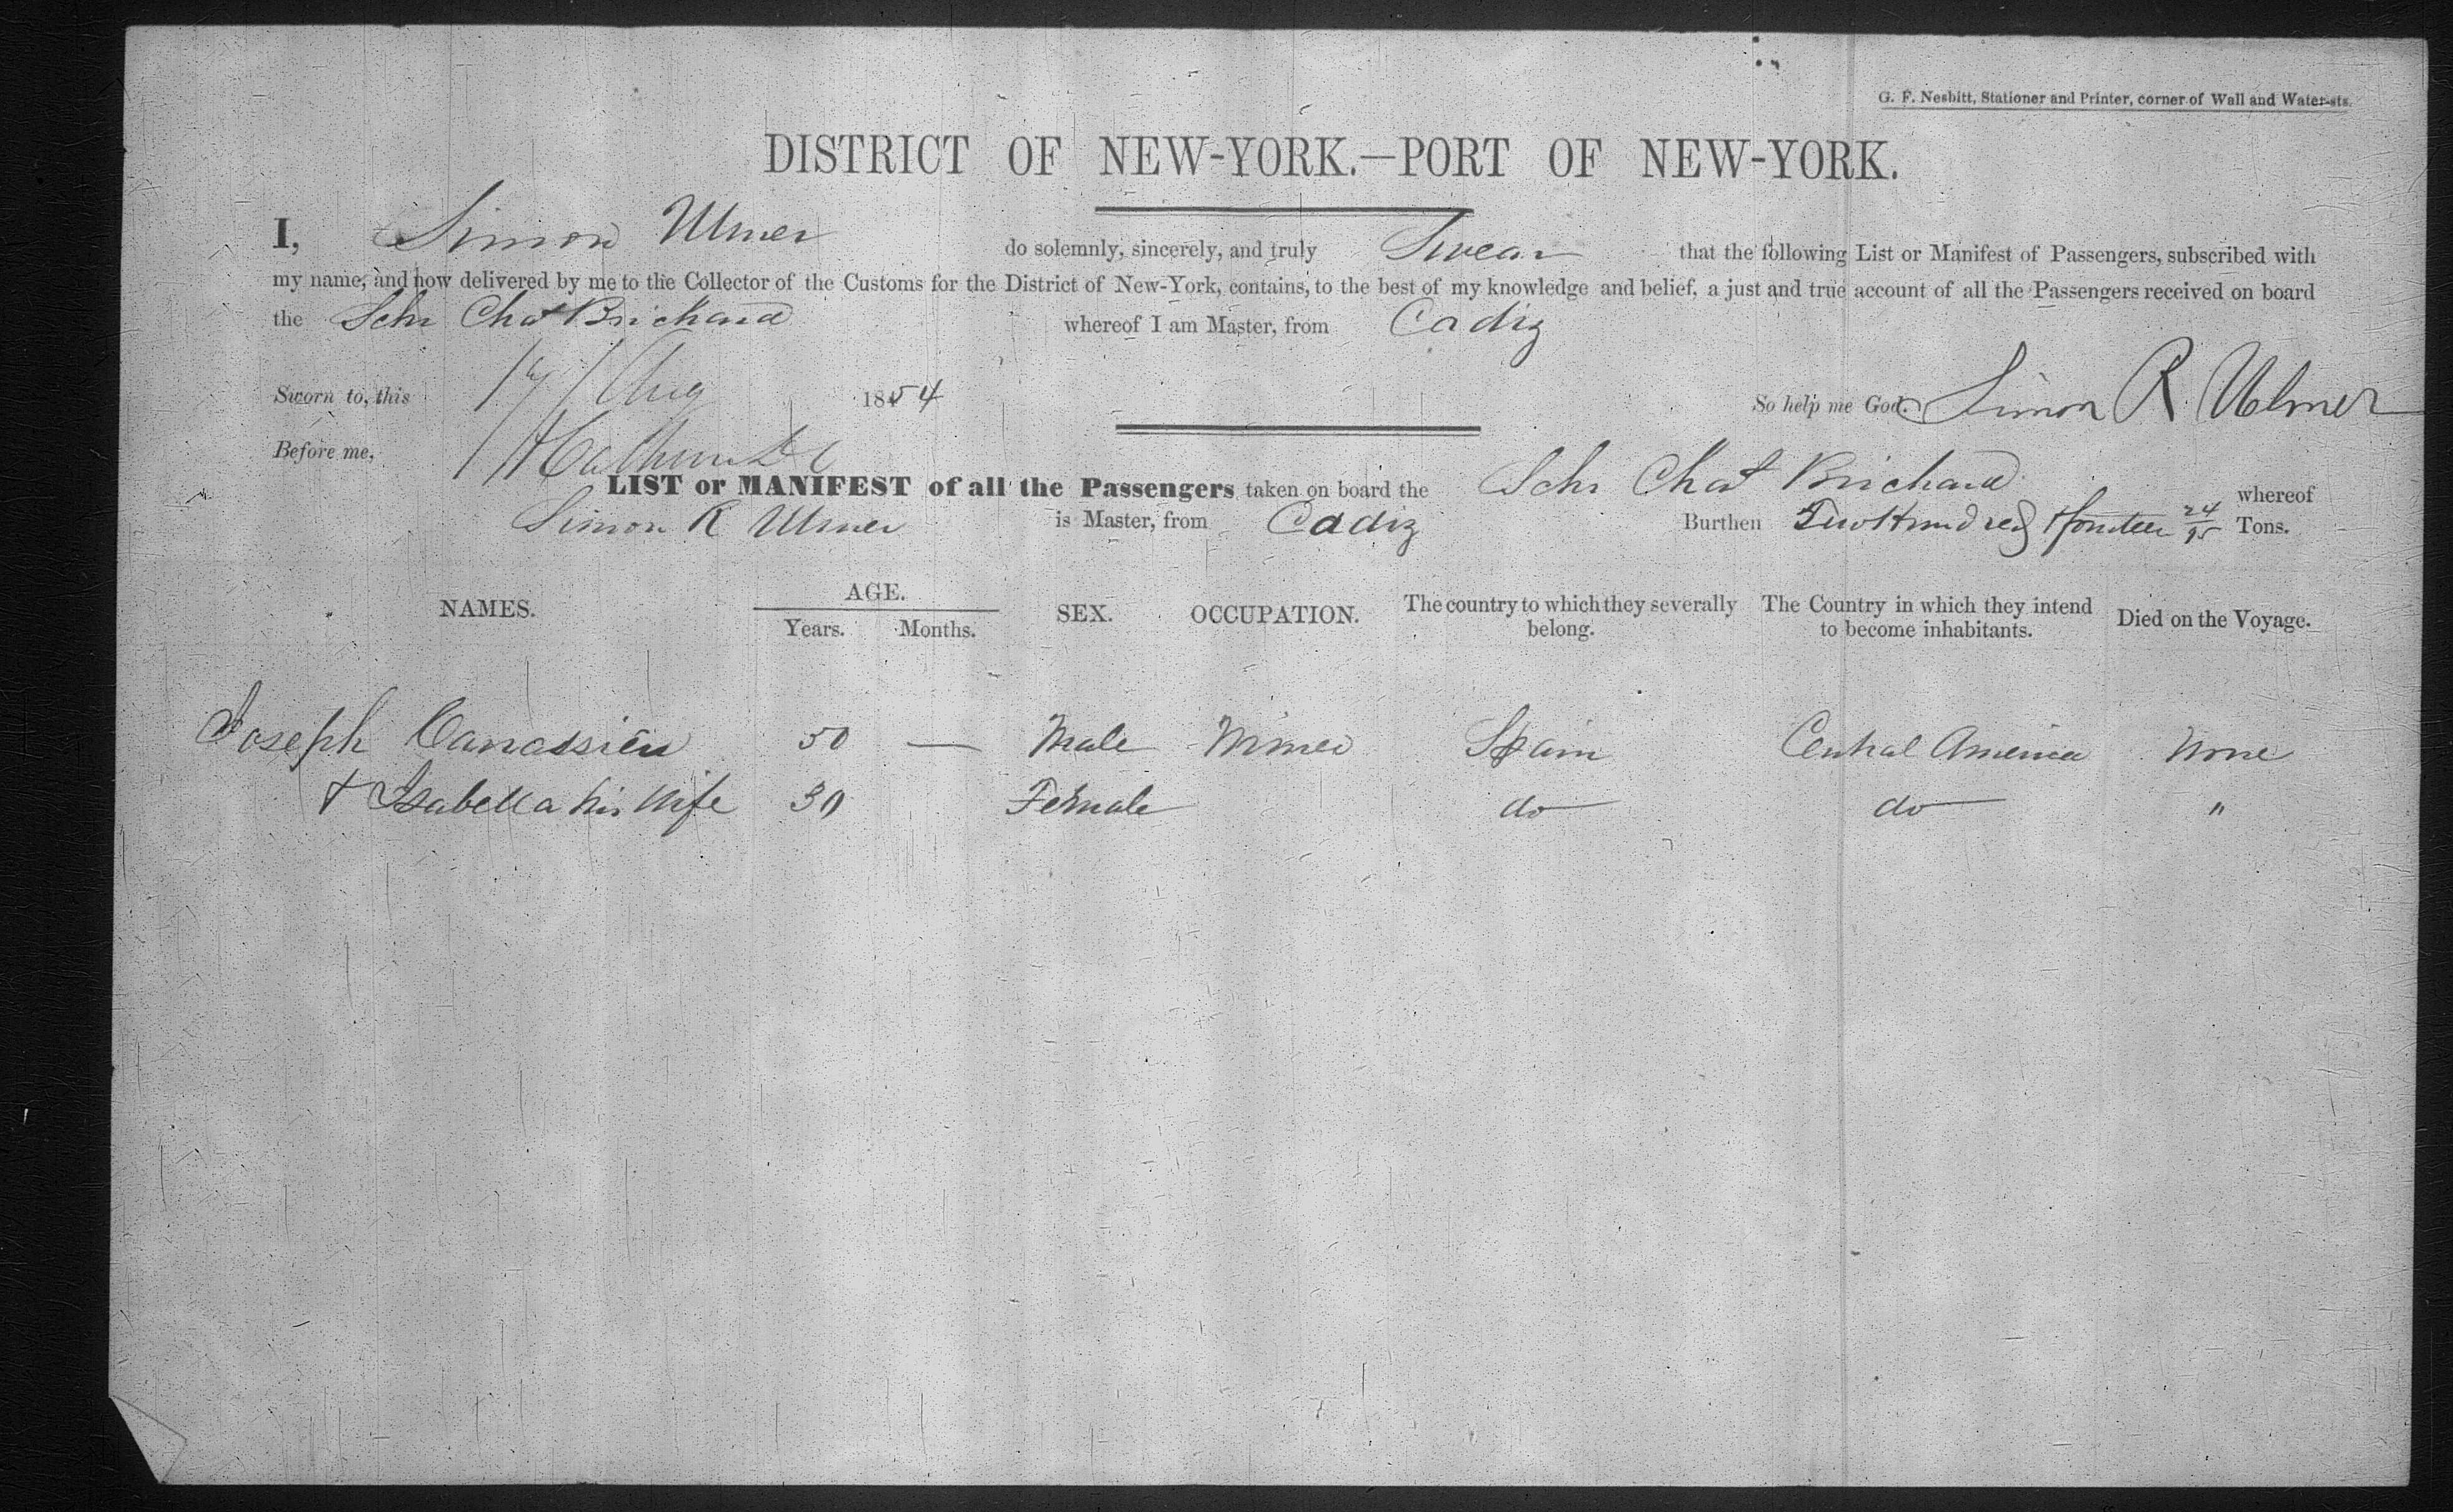 G. F. Nesbitt, Stationer and Printer, corner of Wall and Water-sts.
DISTRICT OF NEW-YORK.—PORT OF NEW-YORK.
I, Simon Ulmer do solemnly, sincerely, and truly Swear that the following List or Manifest of Passengers, subscribed with
my name, and now delivered by me to the Collector of the Customs for the District of New-York, contains, to the best of my knowledge and belief, a just and true account of all the Passengers received on board
the Schr Chat Brichard whereof I am Master, from Cadiz
Sworn to, this 17 Aug 1854 So help me God. Simon R. Ulmer
Before me,
LIST or MANIFEST of all the Passengers taken on board the Schr Chat Brichard whereof
Simon R Ulmer is Master, from Cadiz Burthen Two Hundred & fourteen 24/95 Tons.
NAMES. AGE. Years. Months. SEX. OCCUPATION. The country to which they severally belong. The Country in which they intend to become inhabitants. Died on the Voyage.
Joseph 50 — Male Miner Spain Central America None
& Isabella his Wife 30 Female do do "